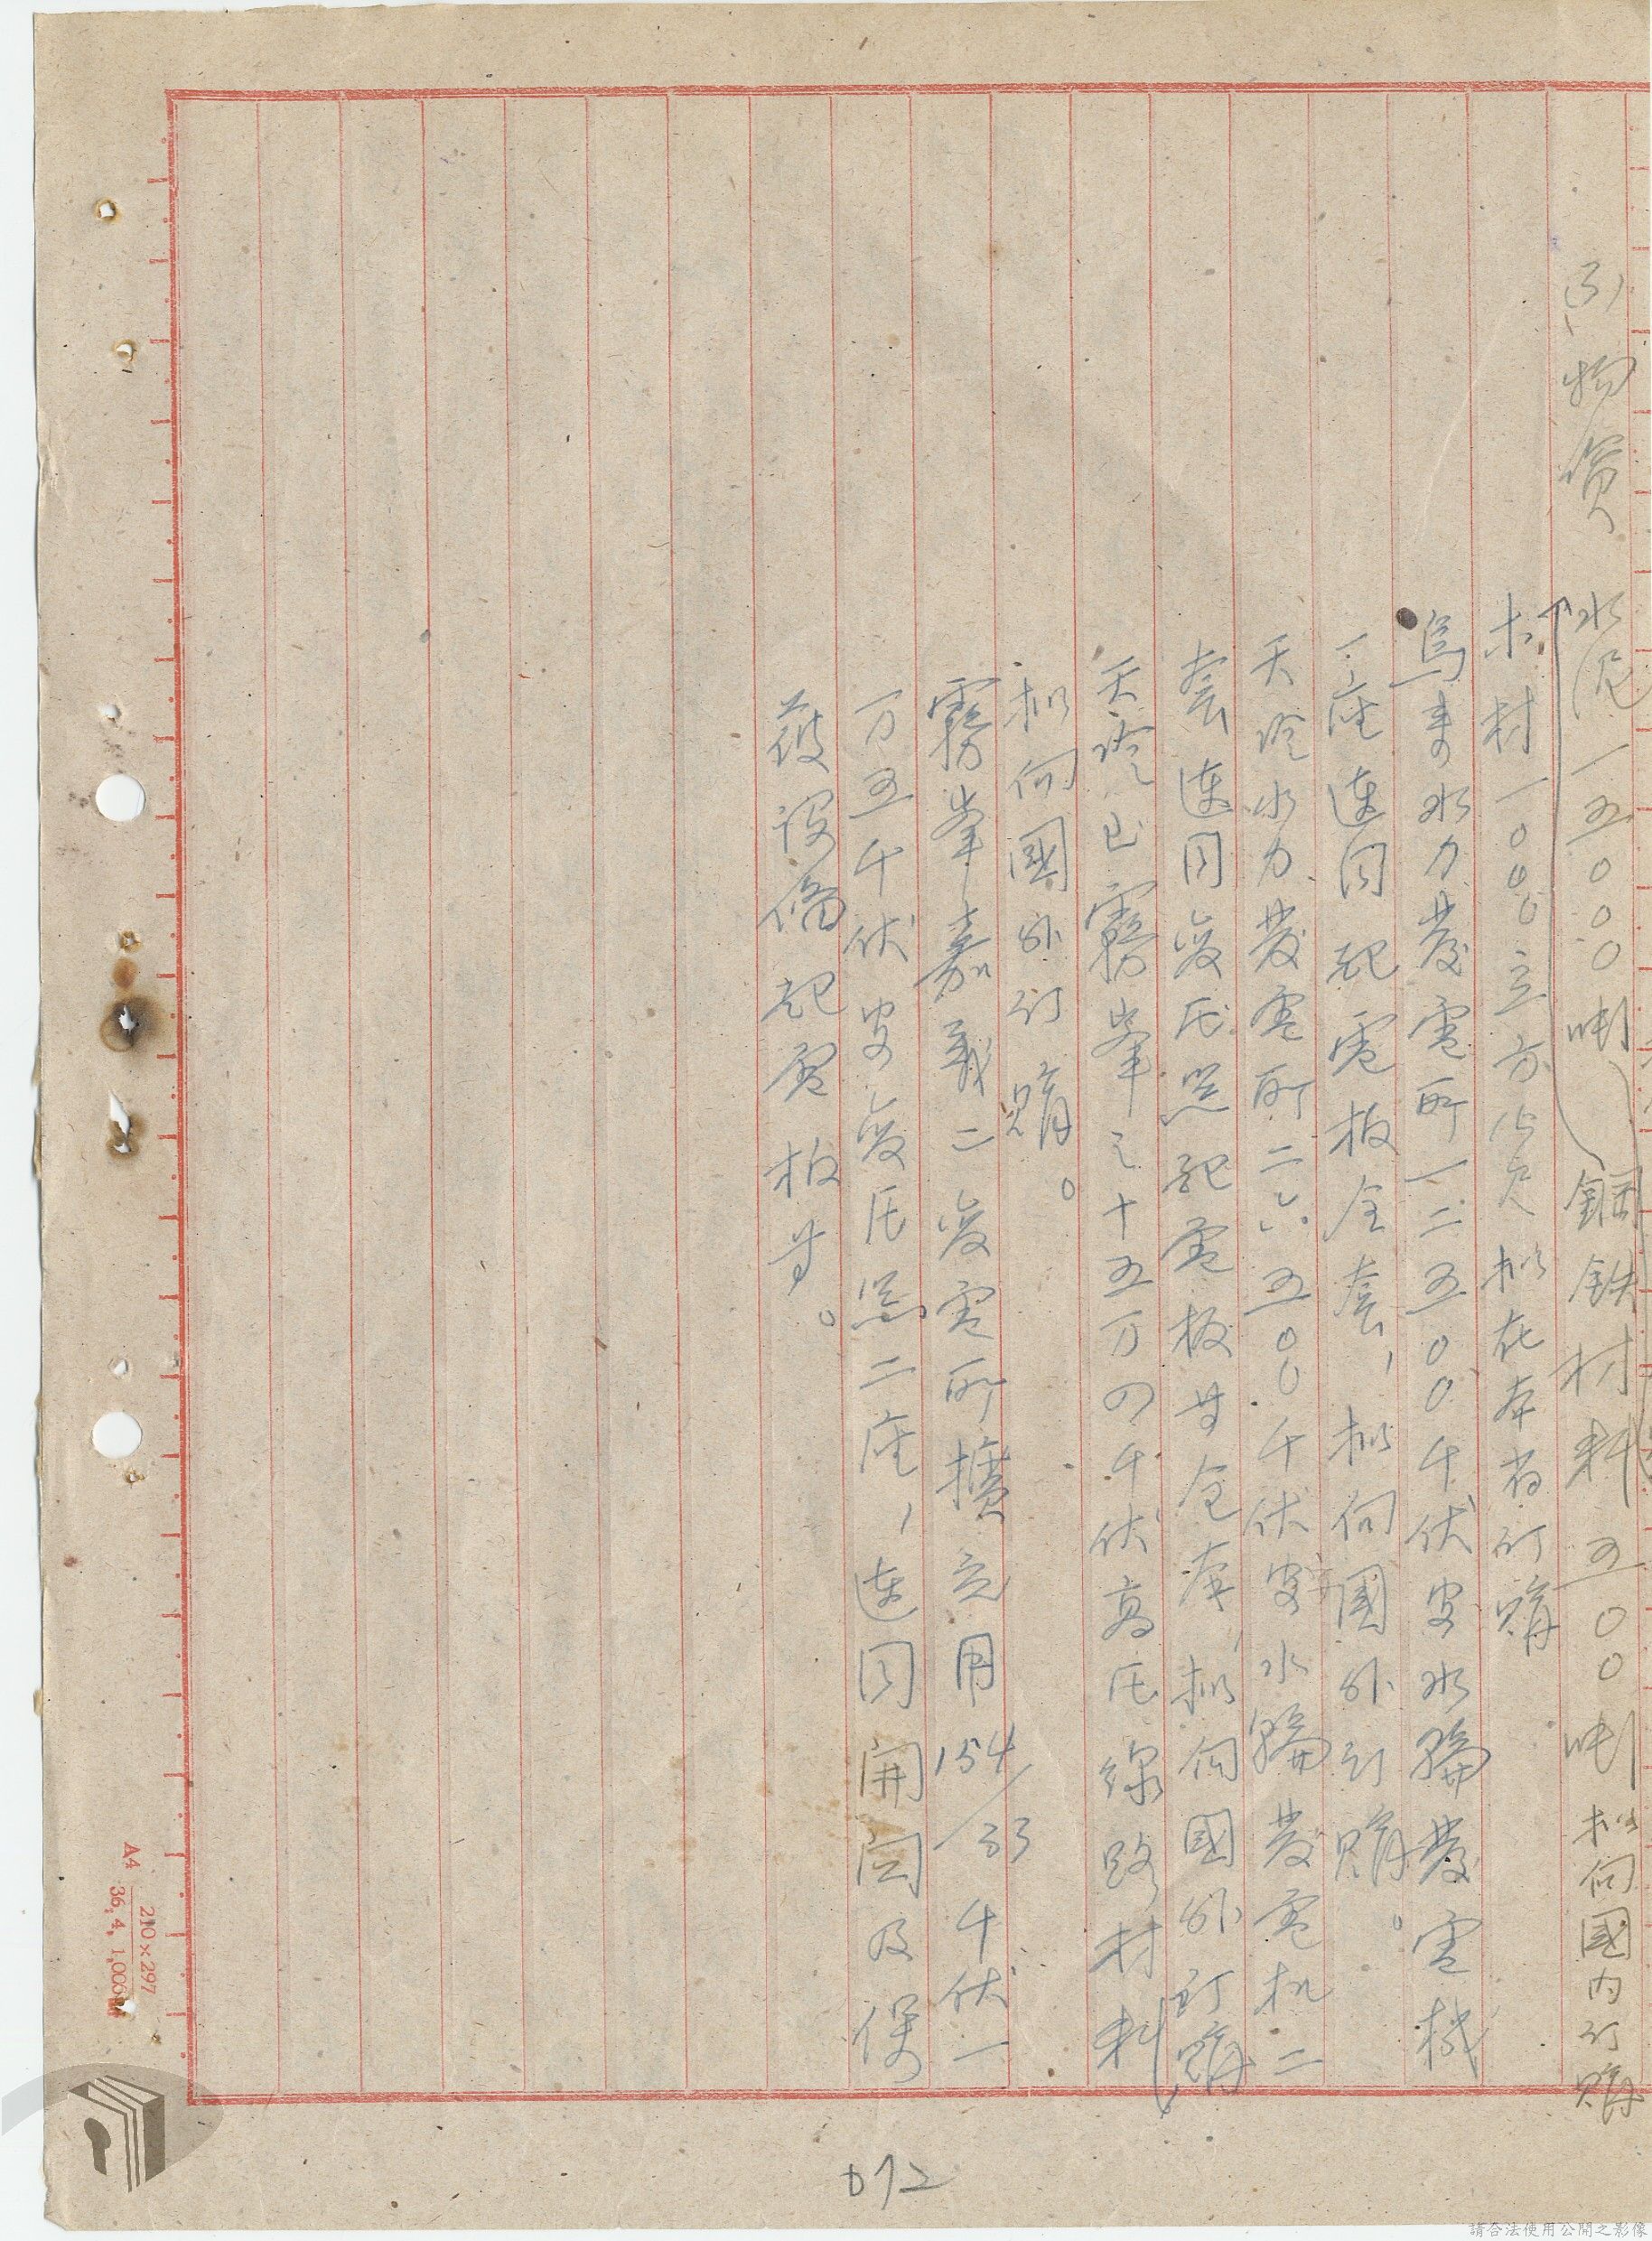 (3)、物資 水泥一五〇〇〇噸 鋼鉄材料五〇〇噸 拟向國內訂購
木材一〇〇〇立方公尺拟在本省訂購
烏來水力發電所一二五〇〇千伏安水輪發電機
一座連同配電板全套，拟向國外訂購。
天冷水力發電所二六五〇〇千伏安水輪發電机二
套連同變压器配電板等全套，拟向國外訂購
天冷已霧峯之十五万四千伏高压線路材料
拟向國外訂購。
霧峯嘉義二變電所擴充用154/33千伏一
万五千伏安變压器二座，連同開関及保
護設備配電板等。
072
A4 210×297
36.4. 1,000
請合法使用公開之影像